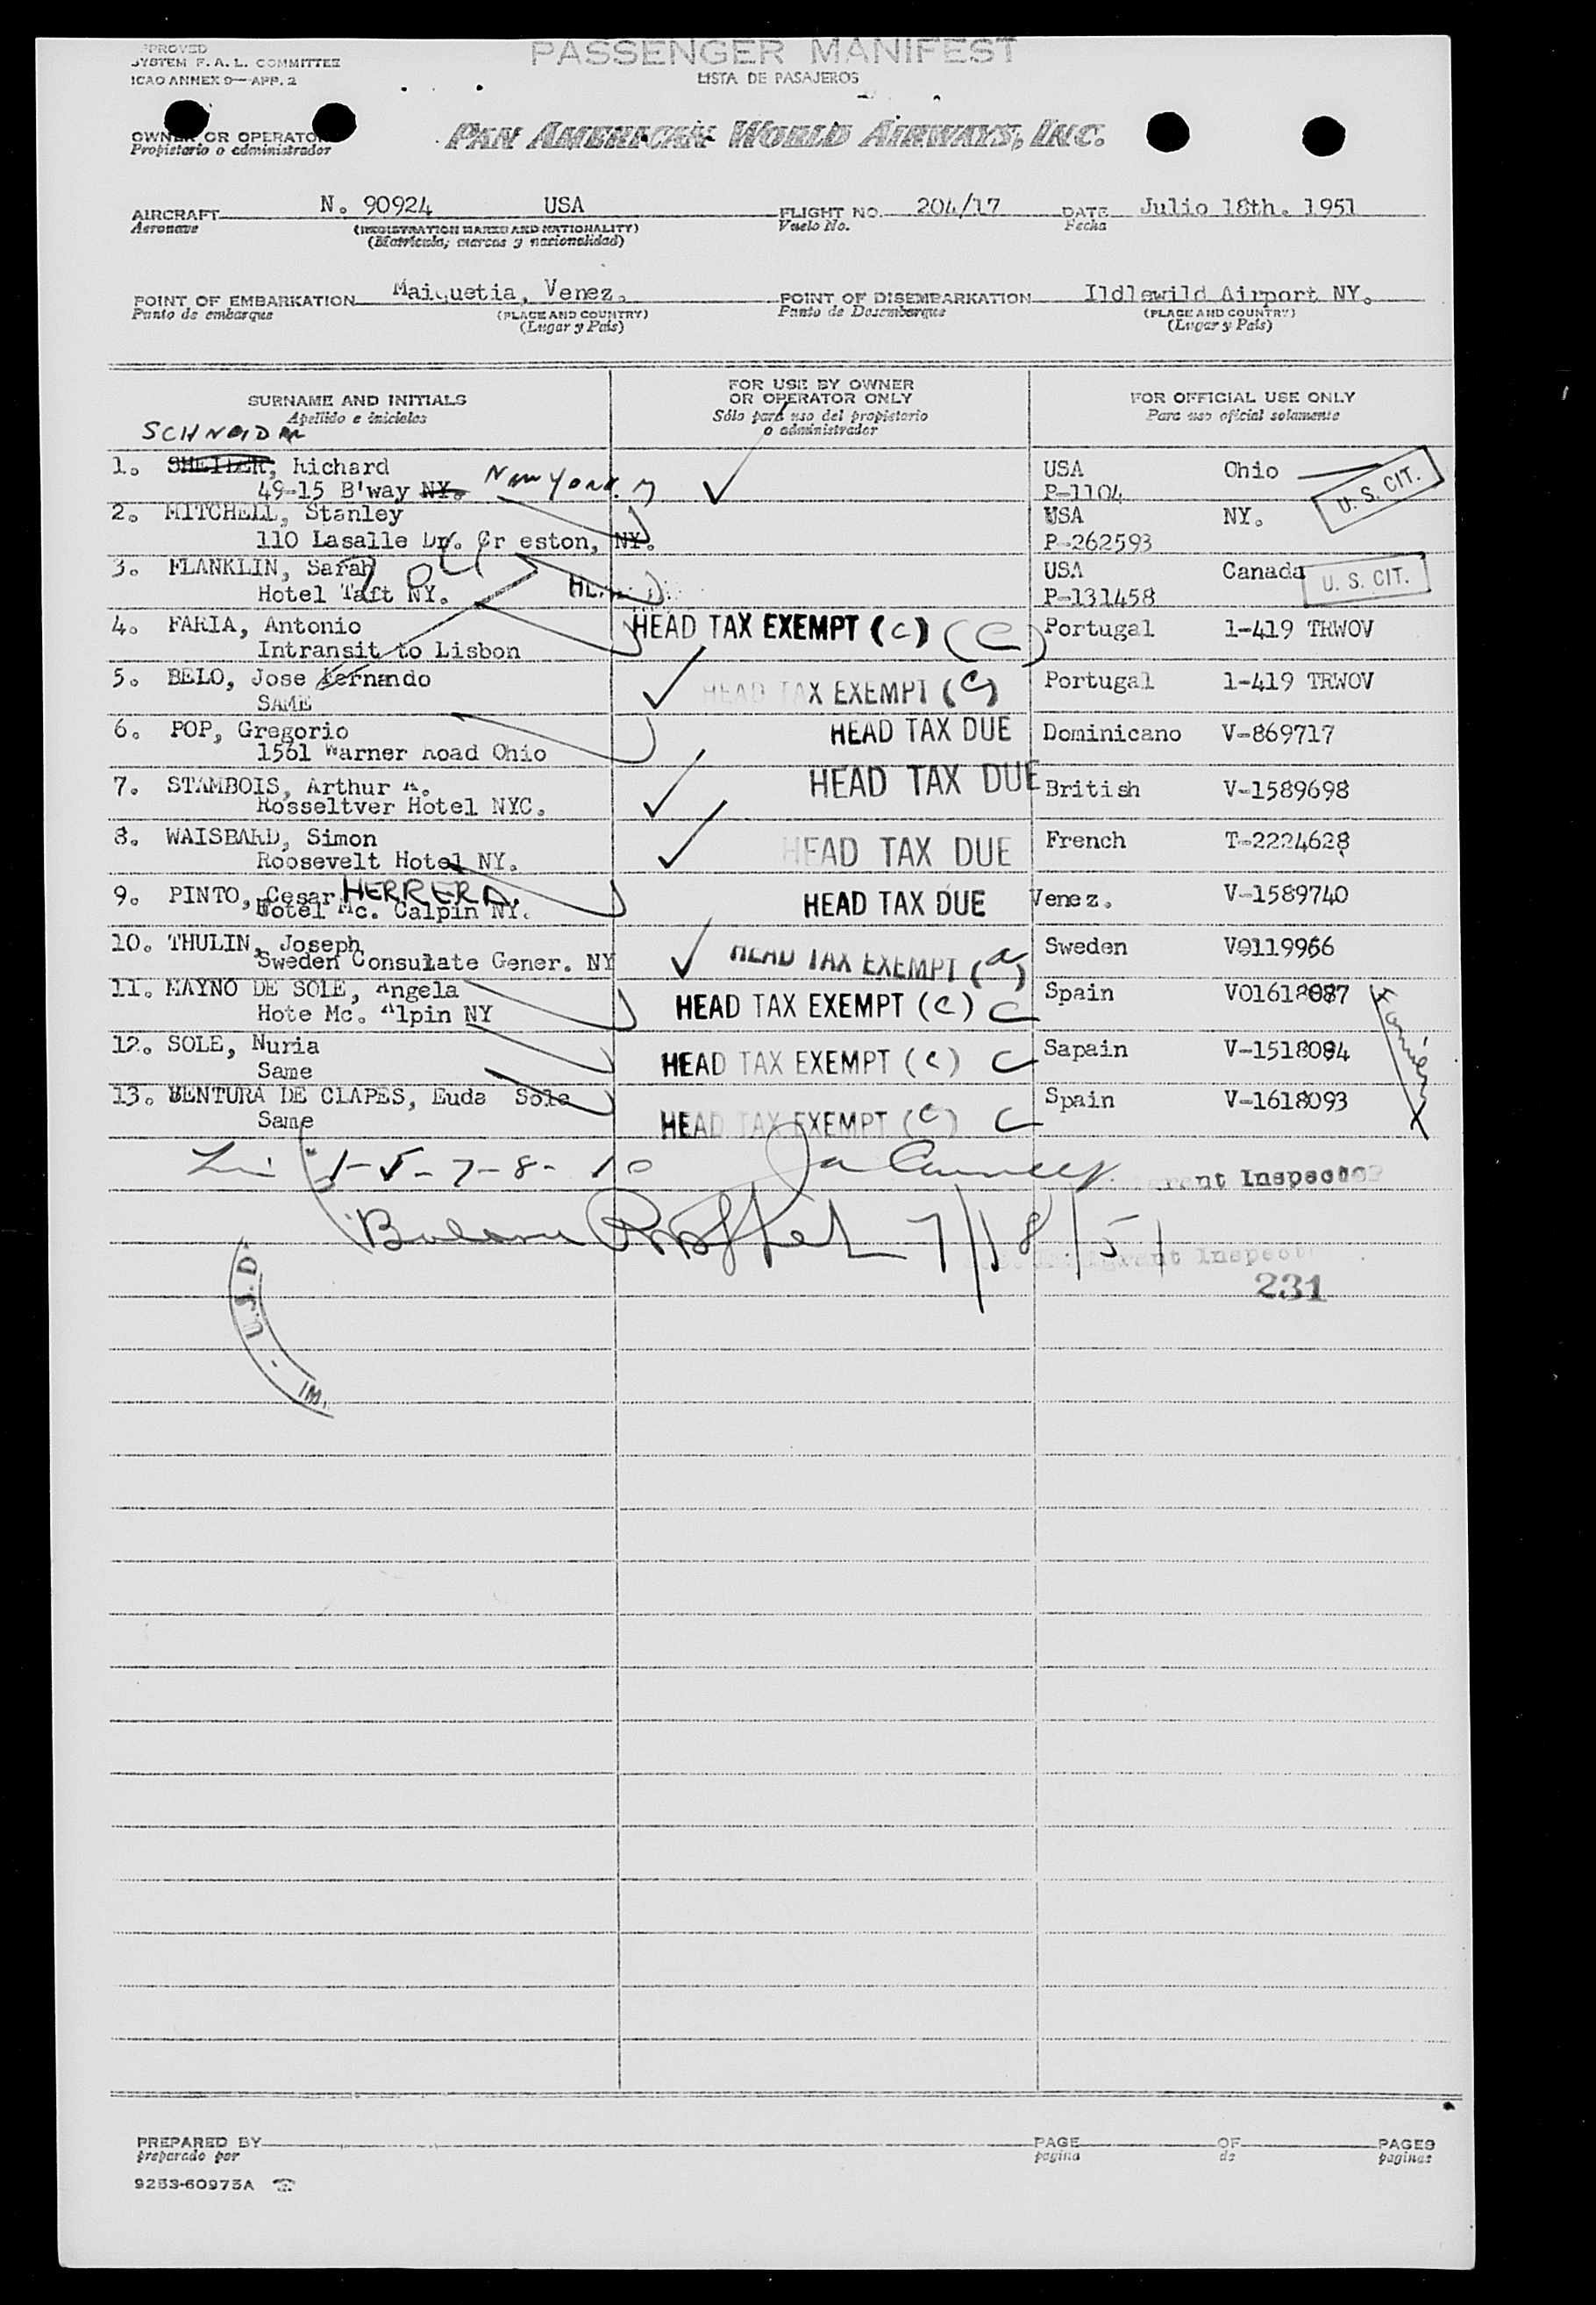 PASSENGER MANIFEST
LISTA DE PASAJEROS
SYSTEM F. A. L. COMMITTEE
ICAO ANNEX 9—APP. 2
OWNER OR OPERATOR
Propietario o administrador
PAN AMERICAN WORLD AIRWAYS, INC.
AIRCRAFT N. 90924 USA FLIGHT NO. 204/17 DATE Julio 18th. 1951
Aeronave (REGISTRATION MARKS AND NATIONALITY) Vuelo No. Fecha
(Matrícula, marcas y nacionalidad)
POINT OF EMBARKATION Maiquetia, Venez. POINT OF DISEMBARKATION Ildlewild Airport NY.
Punto de embarque (PLACE AND COUNTRY) Punto de Desembarque (PLACE AND COUNTRY)
(Lugar y País) (Lugar y País)
SURNAME AND INITIALS FOR USE BY OWNER OR OPERATOR ONLY FOR OFFICIAL USE ONLY
Apellido e iniciales Sólo para uso del propietario o administrador Para uso oficial solamente
SCHNEIDER
1. Richard USA Ohio U. S. CIT.
49-15 B'way NY. New York. P-1104
2. MITCHELL, Stanley USA NY.
110 Lasalle Dr. Cr eston, NY. P-262593
3. FLANKLIN, Sarah USA Canada U. S. CIT.
Hotel Taft NY. P-131458
4. FARIA, Antonio HEAD TAX EXEMPT (c) (C) Portugal 1-419 TRWOV
Intransit to Lisbon
5. BELO, Jose Fernando HEAD TAX EXEMPT (C) Portugal 1-419 TRWOV
SAME
6. POP, Gregorio HEAD TAX DUE Dominicano V-869717
1561 Warner Road Ohio
7. STAMBOIS, Arthur A. HEAD TAX DUE British V-1589698
Rosseltver Hotel NYC.
8. WAISBARD, Simon HEAD TAX DUE French T-2224628
Roosevelt Hotel NY.
9. PINTO, Cesar HERRERA. HEAD TAX DUE Venez. V-1589740
Hotel Mc. Calpin NY.
10. THULIN, Joseph HEAD TAX EXEMPT (a) Sweden V0119966
Sweden Consulate Gener. NY
11. MAYNO DE SOLE, Angela HEAD TAX EXEMPT (c) C Spain V01618087
Hote Mc. Alpin NY
12. SOLE, Nuria HEAD TAX EXEMPT (c) C Sapain V-1518084
Same
13. VENTURA DE CLAPES, Euda Sole HEAD TAX EXEMPT (C) C Spain V-1618093
Same
1-5-7-8-10
Inspector
7/18/51
Immigrant Inspector
231
U.S.D.
IM.
PREPARED BY PAGE OF PAGES
preparado por pagina de paginas
9253-60975A